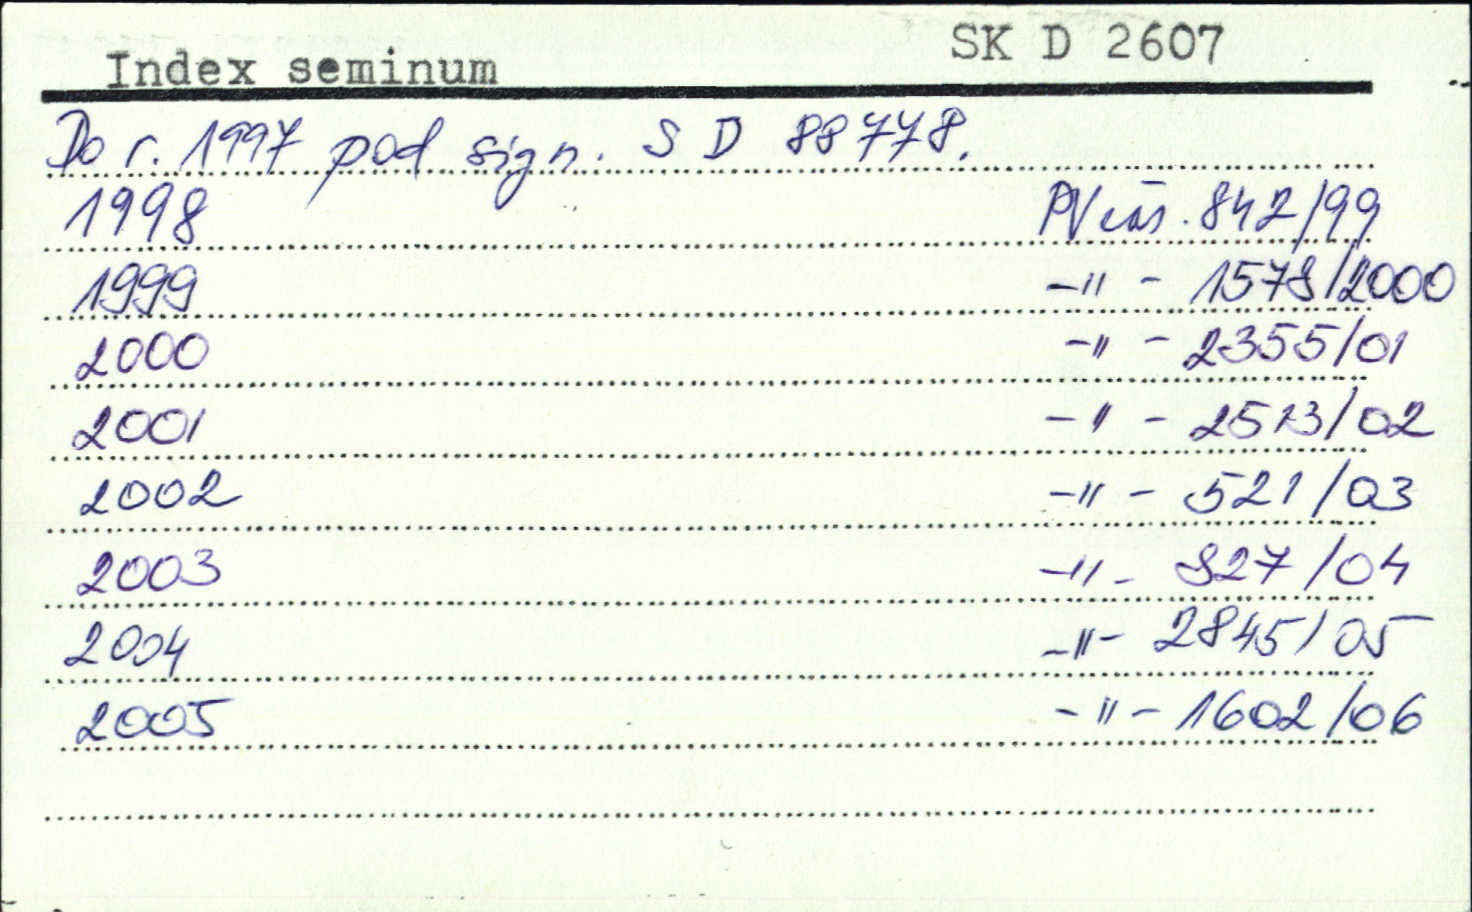 Index seminum SK D 2607
Do r. 1997 pod sign. S D 88778.
1998 PV čas. 842/99
1999 -"- 1578/2000
2000 -"- 2355/01
2001 -"- 2513/02
2002 -"- 521/03
2003 -"- 827/04
2004 -"- 2845/05
2005 -"- 1602/06